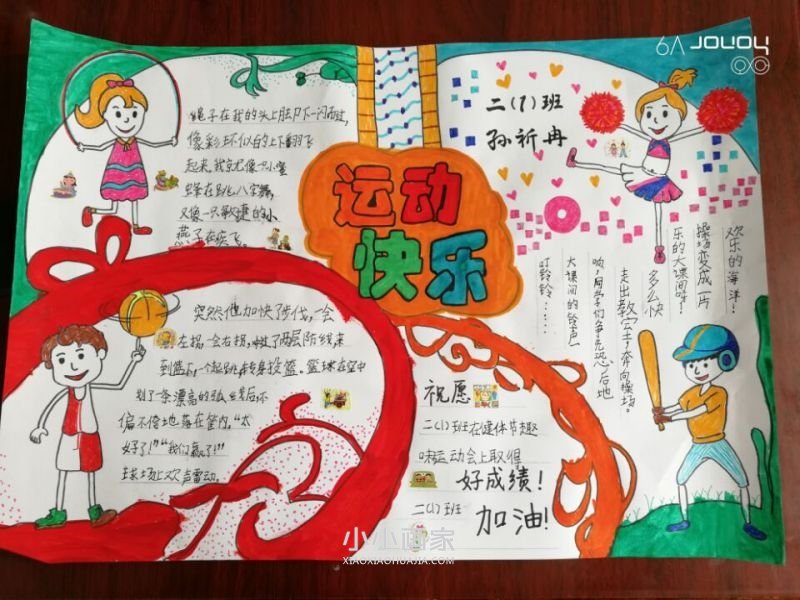 6A JOYOY
运动
快乐
二(1)班
孙祈冉
绳子在我的头上脚下一闪而过,
像彩环似的上下翻飞
起来,我就像一只小蜜
蜂在跳八字舞,
又像一只敏捷的小
燕子在疾飞。
突然他加快了步伐,一会
左拐一会右拐,冲过了两层防线,来
到篮下,一个起跳,转身投篮。篮球在空中
划了一条漂亮的弧线后,不
偏不倚地落在筐内。“太
好了!”“我们赢了!”
球场上欢声雷动。
叮铃铃……
大课间的铃声
响,同学们争先恐后地
走出教室,奔向操场。
多么快
乐的大课间呀!
操场变成一片
欢乐的海洋!
祝愿
二(1)班在健体节趣
味运动会上取得
好成绩!
二(1)班
加油!
小小画家
XIAOXIAOHUAJIA.COM